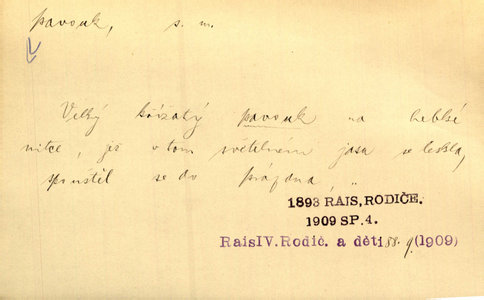 pavouk, s. m.
Velký křížatý pavouk na hebké
nitce, jež v tom světelném jasu se leskla,
spouštěl se do prázdna, „
1893 RAIS, RODIČE.
1909 SP. 4.
RaisIV. Rodič. a děti 88. 9 (1909)